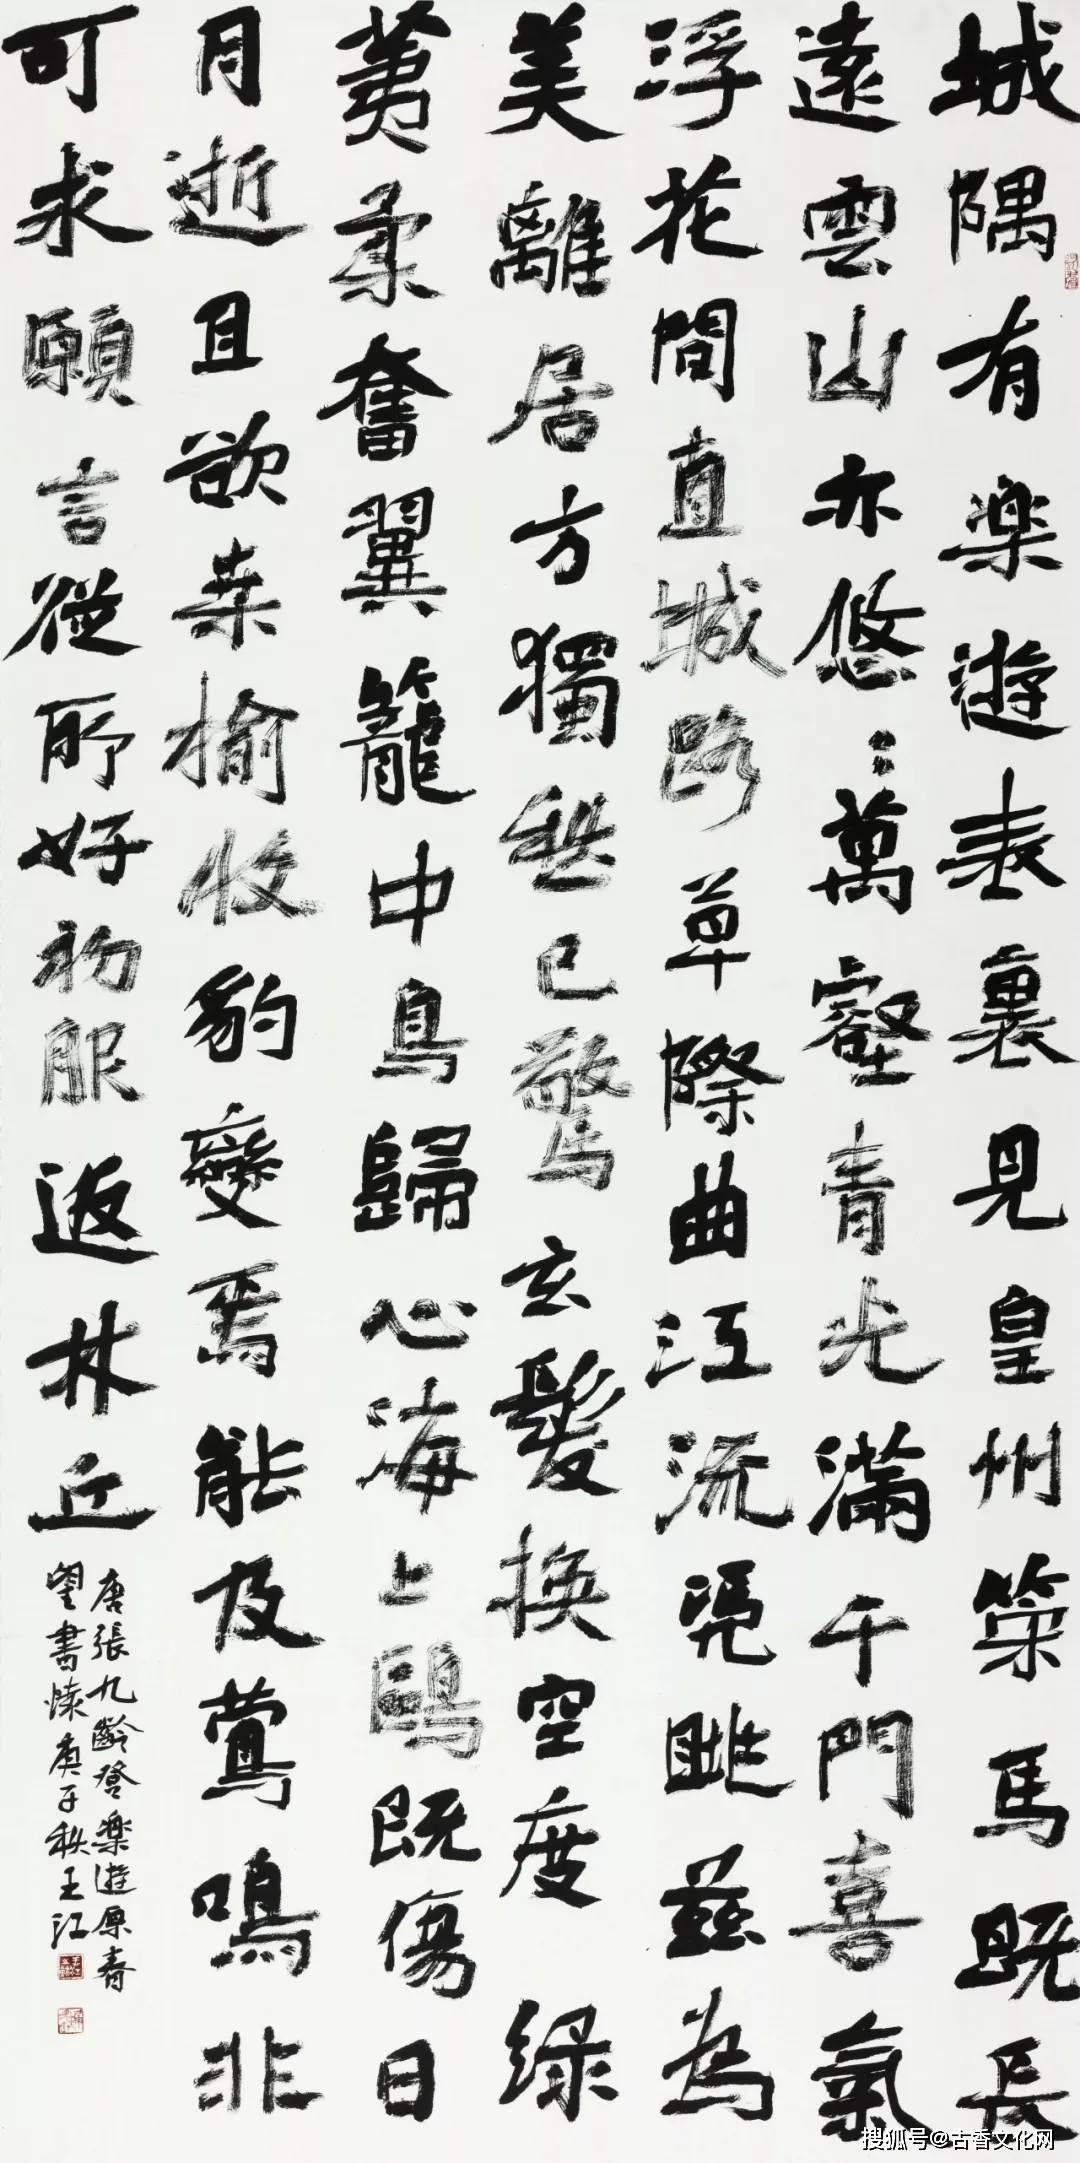 城隅有楽遊表裏見皇州策馬既長
遠雲山亦悠〻萬壑青光滿千門喜氣
浮花間直城路草際曲江流凭眺茲為
美離居方獨愁已驚玄髮換空度緑
荑柔奮翼籠中鳥歸心海上鷗既傷日
月逝且欲桒榆收豹變焉能及鶯鳴非
可求願言從所好初服返林丘
唐張九齡登楽遊原春
望書懷庚子秋王江
搜狐号@古香文化网